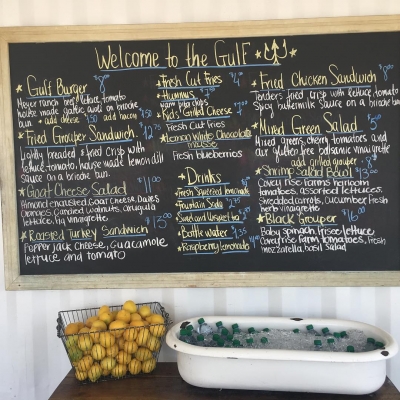 Welcome to the Gulf
Gulf Burger $8
Meyer ranch beef, lettuce, tomato
house made garlic aioli on brioche
bun add cheese $.50 add bacon $1.50
Fried Grouper Sandwich $12.75
Lightly breaded & fried crisp with
lettuce, tomato, house made lemon dill
sauce on a brioche bun.
Goat Cheese Salad $11.00
Almond encrusted Goat Cheese, Dates
Oranges, Candied walnuts, arugula
lettuce, fig vinaigrette
Roasted Turkey Sandwich $13.00
Pepper Jack Cheese, Guacamole
lettuce and tomato
Fresh Cut Fries $4.00
Hummus $7.00
warm pita chips
Kid's Grilled Cheese $7.00
Fresh Cut Fries
Lemon White Chocolate
mousse
Fresh blueberries
Drinks
Fresh Squeezed lemonade
Fountain Soda
Sweet and Unsweet tea
Bottle Water
Raspberry Lemonade
Fried Chicken Sandwich $8.00
Tenders fried crisp with lettuce, tomato
Spicy buttermilk Sauce on a brioche bun
Mixed Green Salad $5
Mixed greens, cherry tomatoes and
our gluten free balsamic vinaigrette
add grilled grouper
Shrimp Salad Bowl $13.00
Covey rise Farms heirloom
tomatoes, assorted lettuces,
Shredded carrots, cucumber, Fresh
herb vinaigrette
Black Grouper $16.00
Baby spinach, Frisee lettuce
Covey rise Farm tomatoes, fresh
mozzarella, basil salad